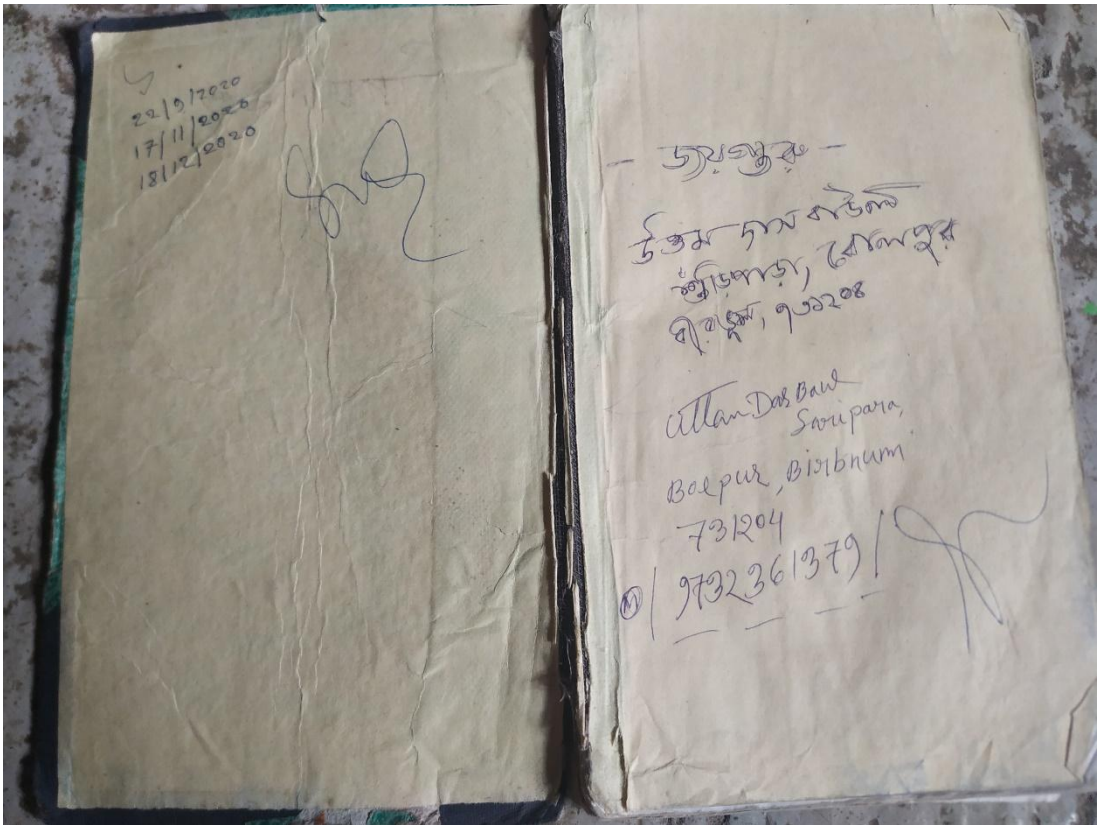 22/9/2020
17/11/2020
18/12/2020
- জয়গুরু -
উত্তম দাস বাউল
শুঁড়িপাড়া, বোলপুর
বীরভূম, ৭৩১২০৪
Uttam Das Baul
Suripara,
Bolpur, Birbhum
731204
(M) | 9732361379 |